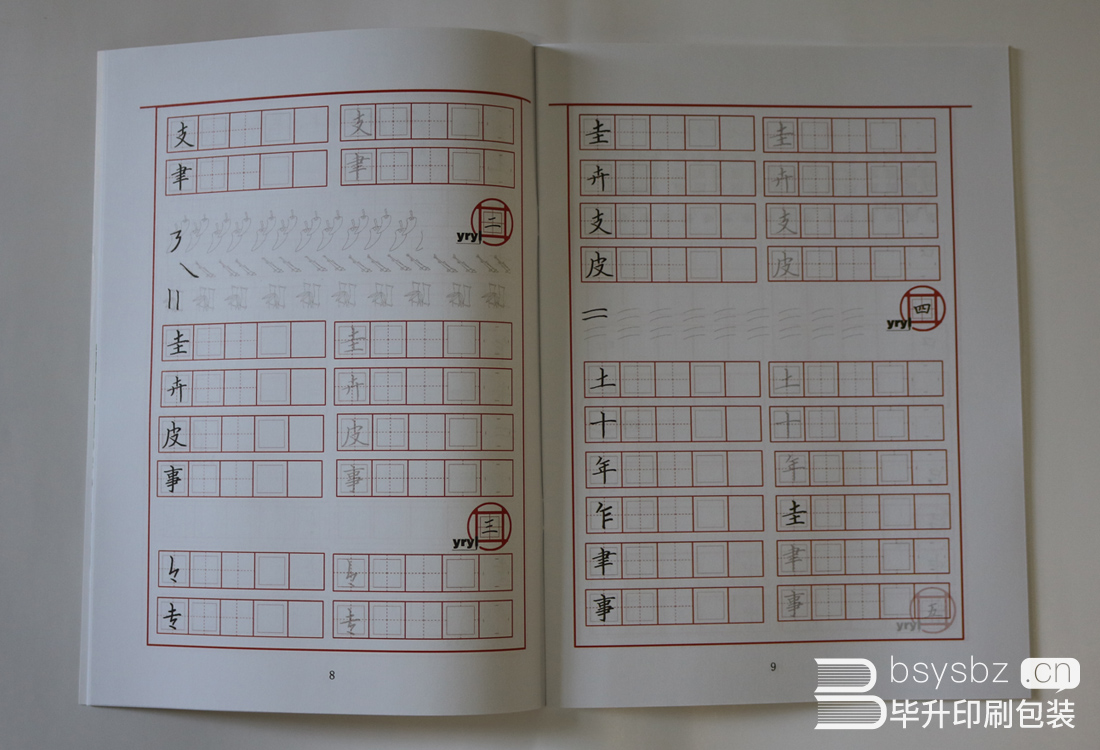 支 支
聿 聿
二
yryl
圭 圭
卉 卉
皮 皮
事 事
三
yryl
专 专
8
圭 圭
卉 卉
支 支
皮 皮
四
yryl
二
土 土
十 十
年 年
乍 圭
聿 聿
事 事
五
yryl
9
bsysbz.cn
毕升印刷包装